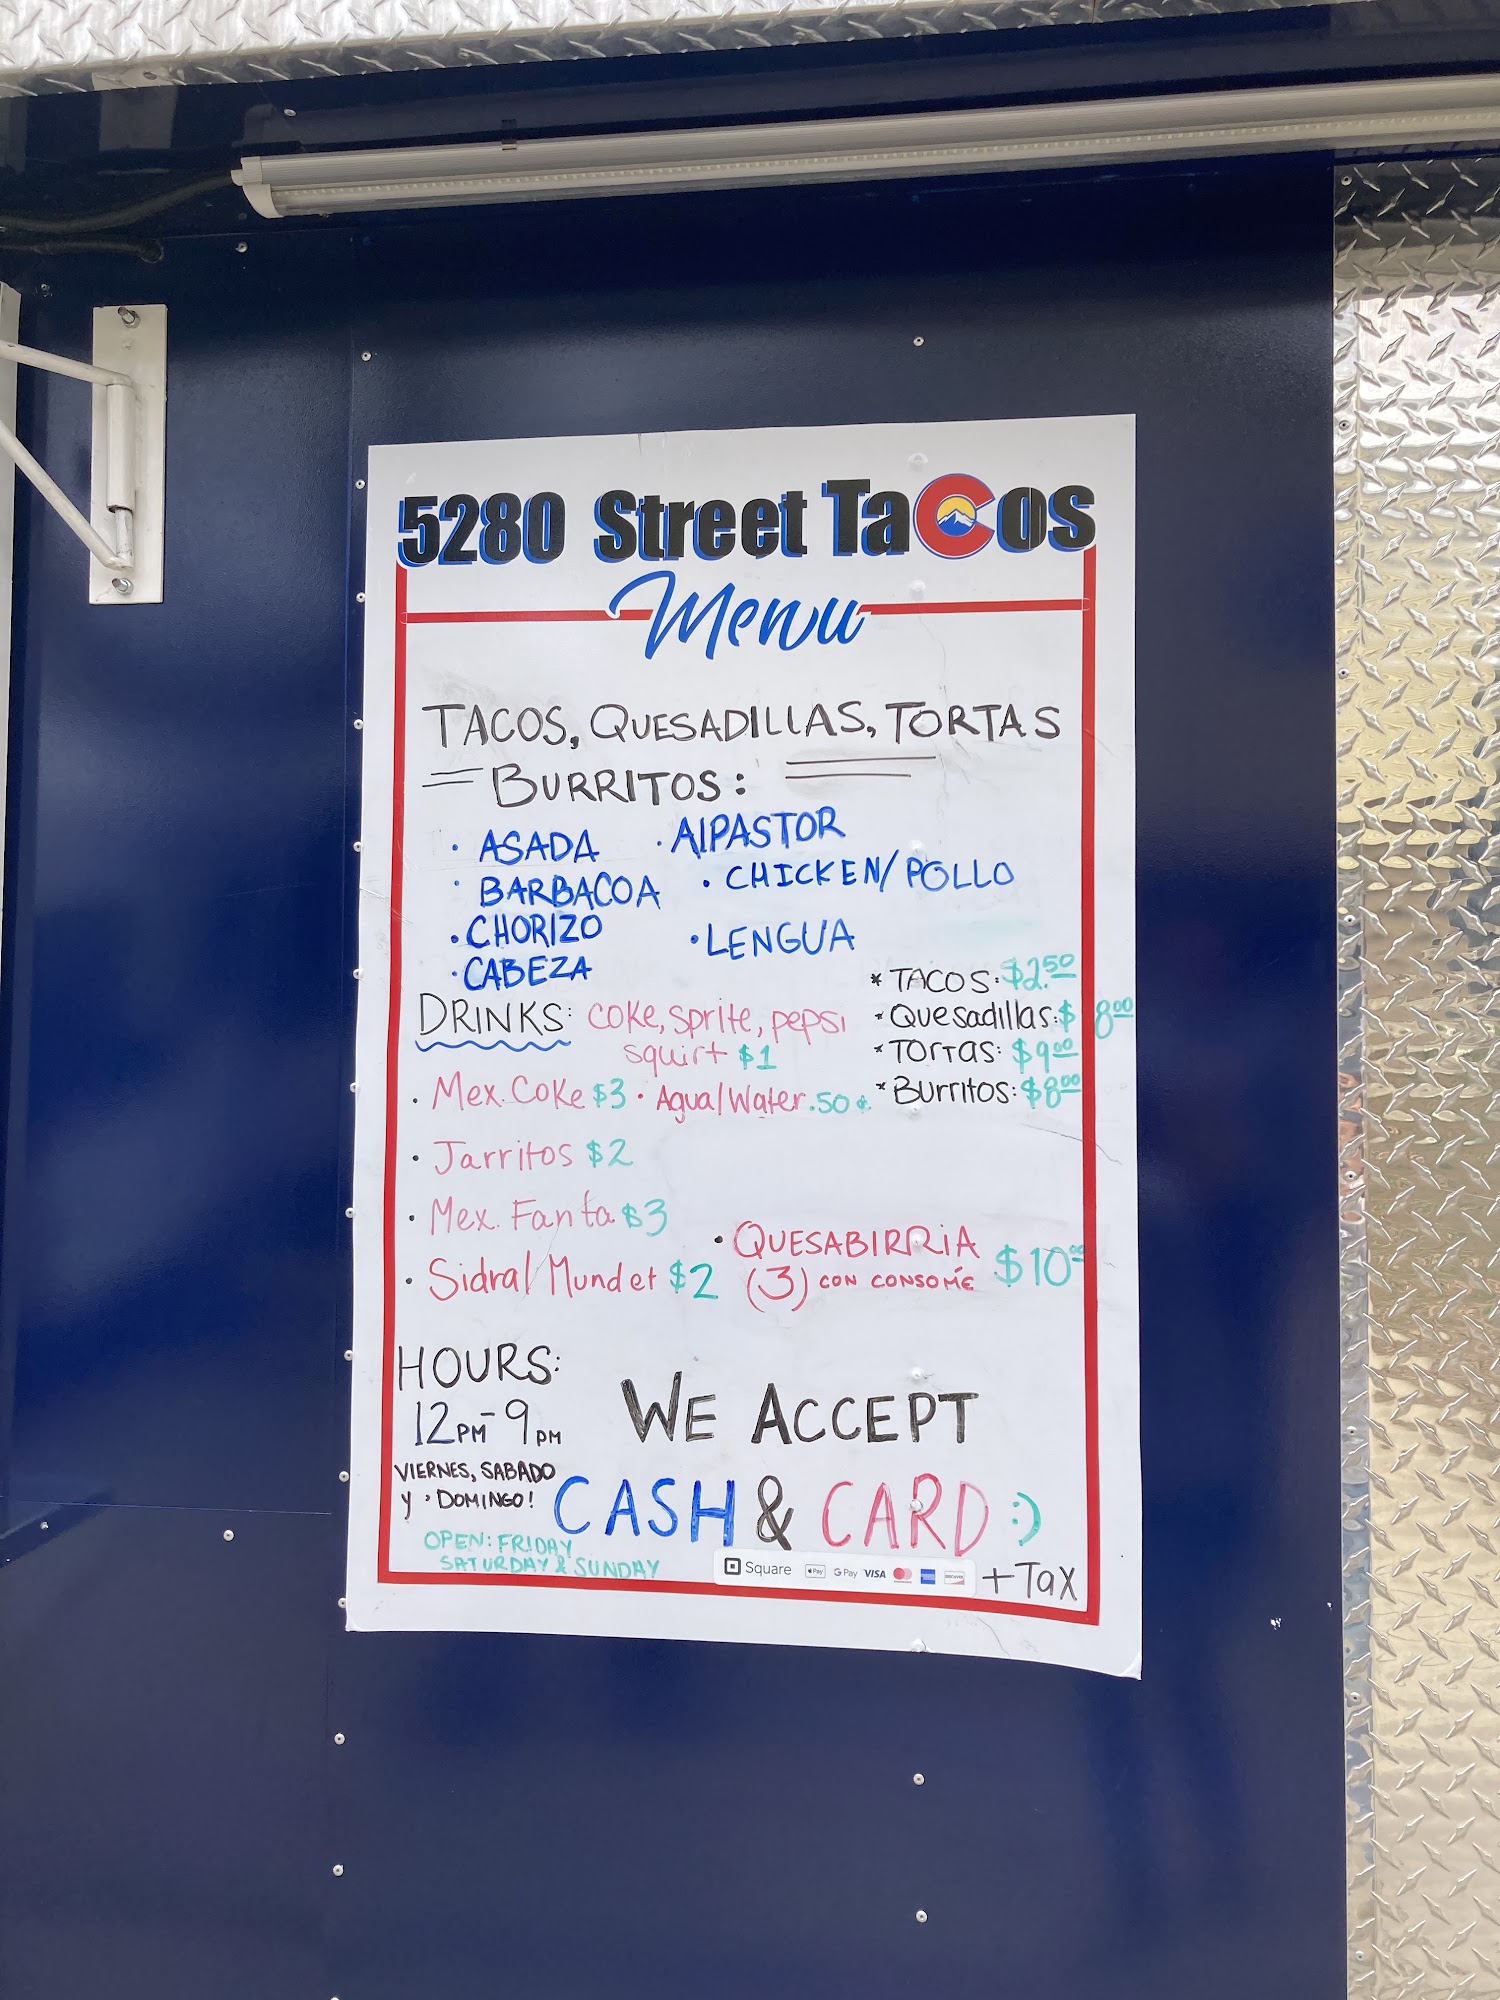 5280 Street Tacos
Menu
TACOS, QUESADILLAS, TORTAS
BURRITOS:
· ASADA · AlPASTOR
· BARBACOA · CHICKEN/POLLO
· CHORIZO · LENGUA
· CABEZA
* TACOS: $2.50
* Quesadillas: $8.00
* Tortas: $9.00
* Burritos: $8.00
DRINKS: Coke, sprite, pepsi
squirt $1
· Mex. Coke $3 · Agua/Water .50¢
· Jarritos $2
· Mex. Fanta $3
· Sidral Mundet $2
· QUESABIRRiA
(3) CON CONSOMÉ $10.00
HOURS:
12PM-9PM
VIERNES, SABADO
Y · DOMINGO!
OPEN: FRIDAY
SATURDAY & SUNDAY
WE ACCEPT
CASH & CARD :)
Square Pay G Pay VISA
+ Tax